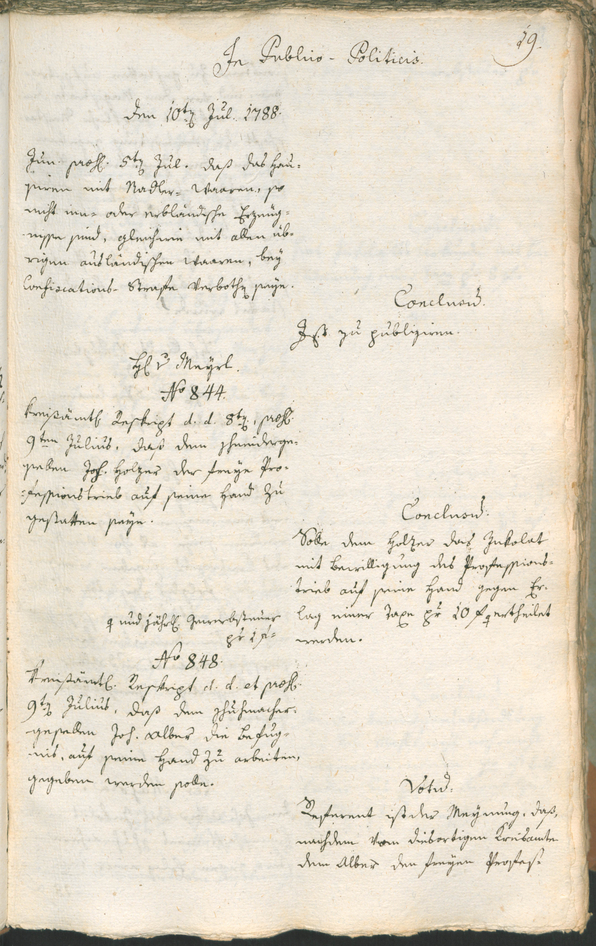 19.
In Publico-Politicis.
den 10ten Jul. 1788.
Zum praes. 5ten Jul. daß das Hau-
siren mit Nadler-Waaren, so
nicht inn- oder erbländische Erzeug-
nisse sind, gleichwie mit allen üb-
rigen ausländischen Waaren, bey
Confiscations-Straffe verbothen seye.
Conclusum.
Ist zu publiziren.
H. v. Mayrl.
No 844.
Kreisämtl. Reskript d. d. 8ten, praes.
9ten Julius, daß dem Schneiderge-
sellen Joh. Holzer der freye Pro-
fessionstrieb auf seine Hand zu
gestatten seye.
Conclusum.
Solle dem Holzer das Inkolat
mit Bewilligung des Professions-
trieb auf seine Hand gegen Er-
lag einer Taxe pr 10 f ertheilet
werden.
und jährl. Gewerbsteuer
pr 1 f
No 848.
Kreisämtl. Reskript d. d. et praes.
9ten Julius, daß dem Schuhmacher-
gesellen Joh. Alber die Befug-
nis, auf seine Hand zu arbeiten,
gegeben werden solle.
Votum.
Referent ist der Meynung, daß,
nachdem vom diesortigen Kreisamte
dem Alber den freyen Profes-